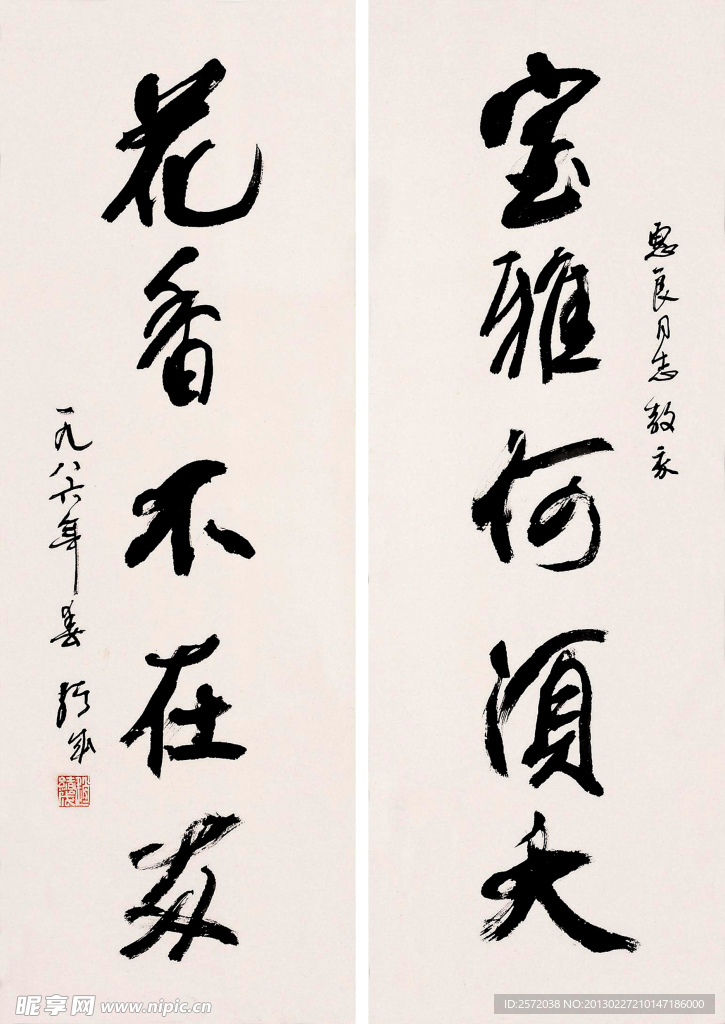 室雅何須大
良同志
花香不在多
一九八六年春
昵享网 www.nipic.cn
ID:2572038 NO:20130227210147186000